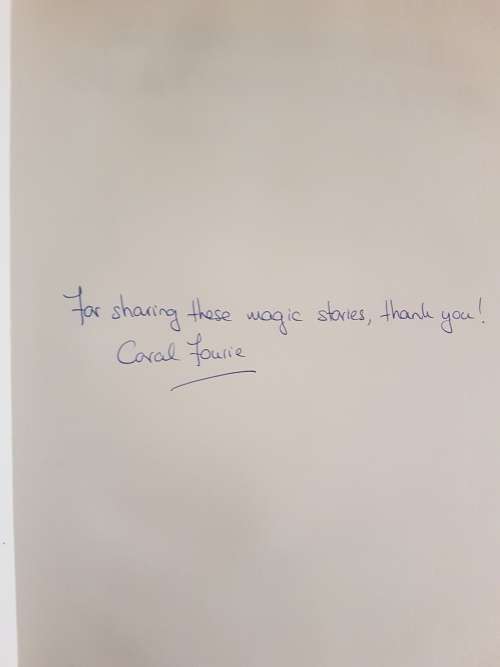 For sharing these magic stories, thank you!
Coral Fourie